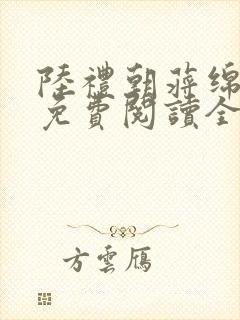 陸禮朝蔣綿
免費閱讀全
方雲鴈